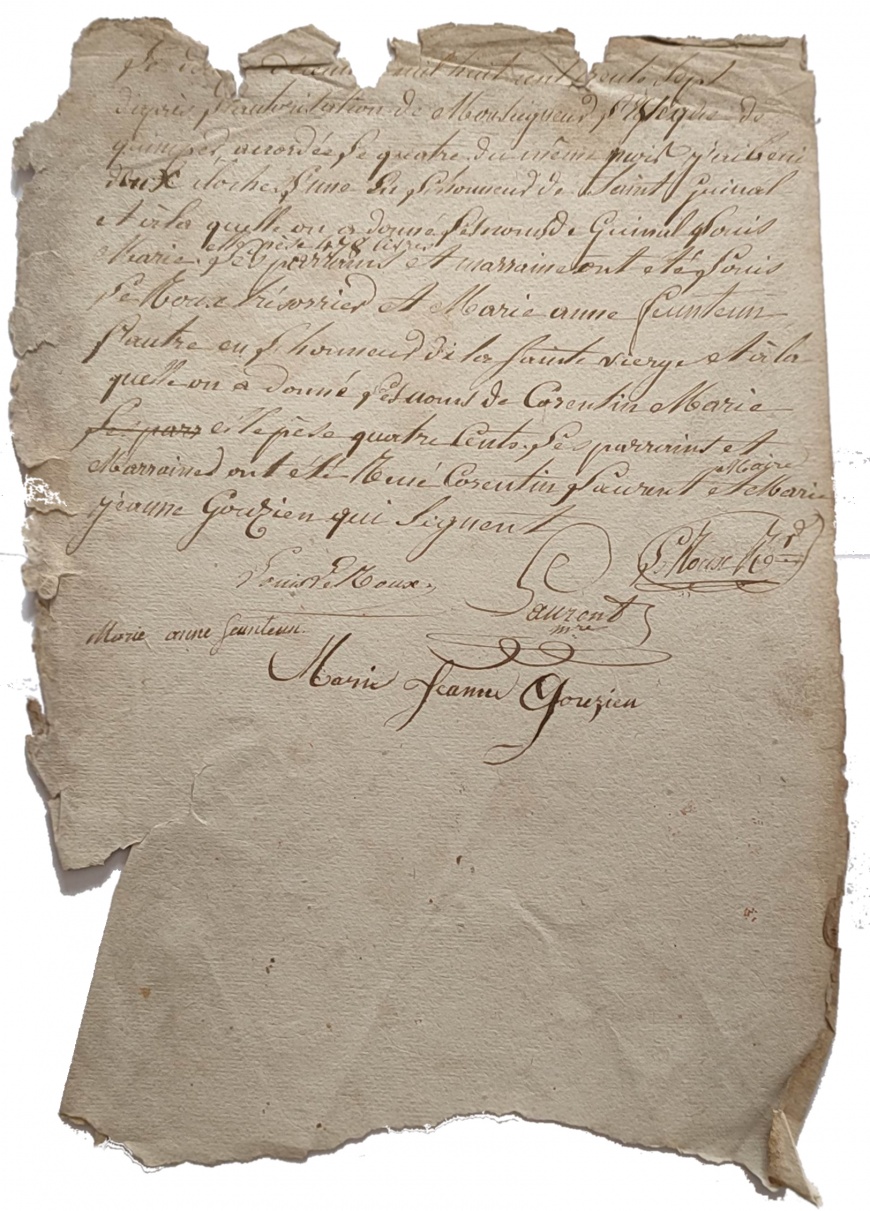 mil huit cent trente sept
d'après l'autorisation de Monseigneur l'Evêque de
quimper accordée le quatre du même mois j'ai beni
deux cloches l'une en l'honneur de Saint Guinal
et à la quelle on a donné les noms de Guinal Louis
elle pèse 478 livres
Marie. Les parrains et marraine ont eté Louis
Le Roux trésorrier et Marie anne Seunteun
l'autre en l'honneur de la Sainte vierge et à la
quelle on a donné les noms de Corentin Marie
Les parr elle pèse quatre Cents. Les parrains et
Marraines ont été René Corentin Laurent Maire et Marie
jeanne Gouzien qui signent
Louis Le Roux
Laurent
mre
L. Roux Rr
Marie anne Seunteun.
Marie Jeanne Gouzien